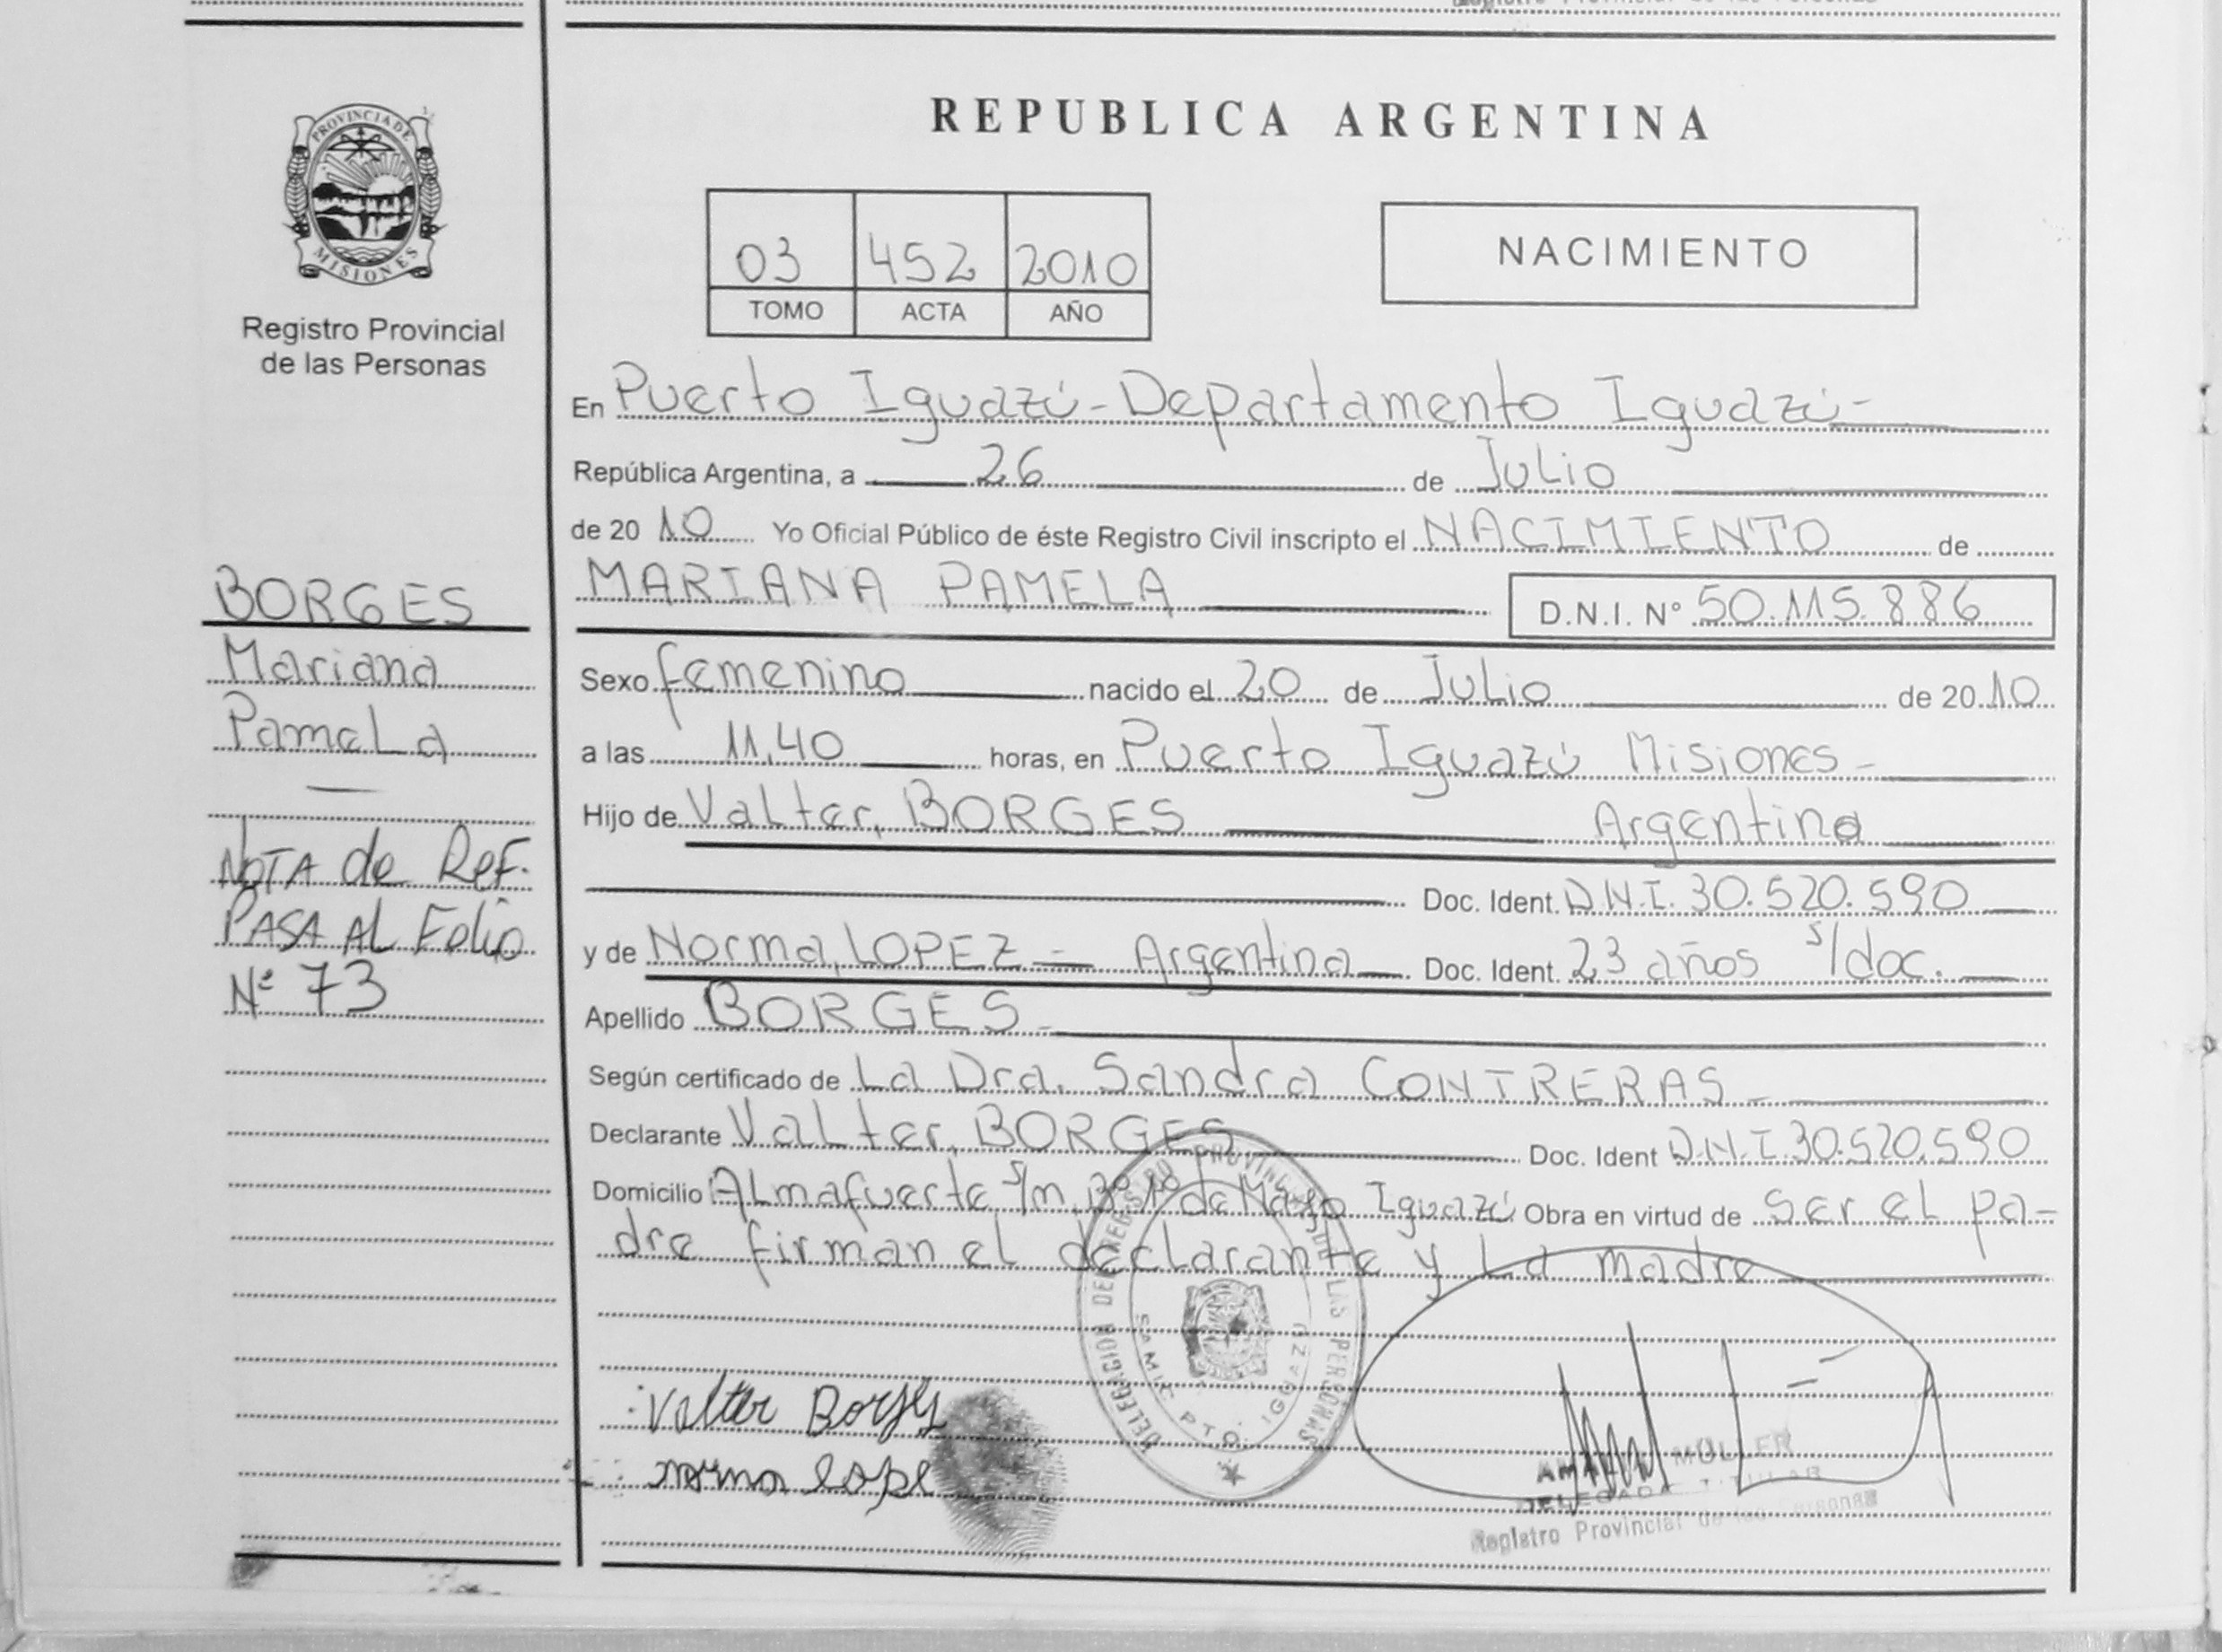 PROVINCIA DE
MISIONES
Registro Provincial
de las Personas
REPUBLICA ARGENTINA
03 452 2010
TOMO ACTA AÑO
NACIMIENTO
En Puerto Iguazú - Departamento Iguazú -
República Argentina, a 26 de Julio
de 20 10 Yo Oficial Público de éste Registro Civil inscripto el NACIMIENTO de
MARIANA PAMELA D.N.I. Nº 50.115.886
Sexo femenino nacido el 20 de Julio de 20 10
a las 11,40 horas, en Puerto Iguazú Misiones -
Hijo de Valter, BORGES Argentina
Doc. Ident. D.N.I. 30.520.590
y de Norma, LOPEZ - Argentina Doc. Ident. 23 años s/doc.
Apellido BORGES -
Según certificado de La Dra. Sandra CONTRERAS -
Declarante Valter, BORGES Doc. Ident D.N.I. 30.520.590
Domicilio Almafuerte s/n, Bº 1º de Mayo Iguazú Obra en virtud de ser el pa-
dre firman el declarante y La madre
BORGES
Mariana
Pamela
NOTA de Ref.
PASA AL Folio
Nº 73
DELEGACION DEL REGISTRO PROVINCIAL DE LAS PERSONAS
SAMIC PTO. IGUAZU
Valter Borges
norma lope
MULLER
DELEGADA TITULAR
Registro Provincial de las Personas